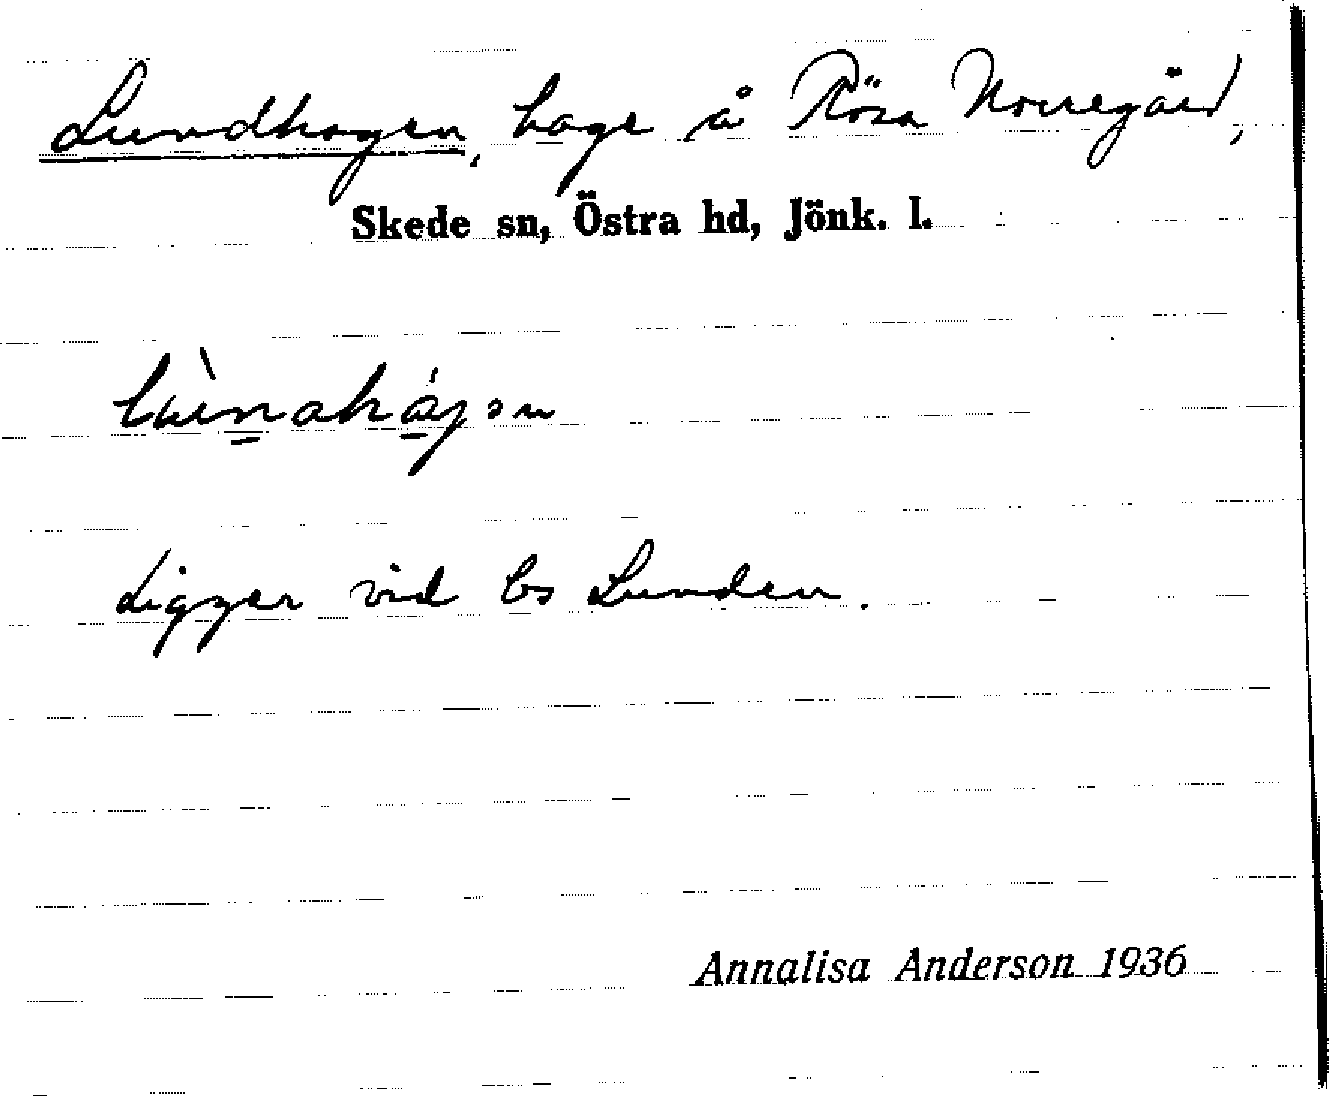 Lundhagen, hage å Rösa Norregård,
Skede sn, Östra hd, Jönk. l.
Ligger vid ls Lunden.
Annalisa Anderson 1936